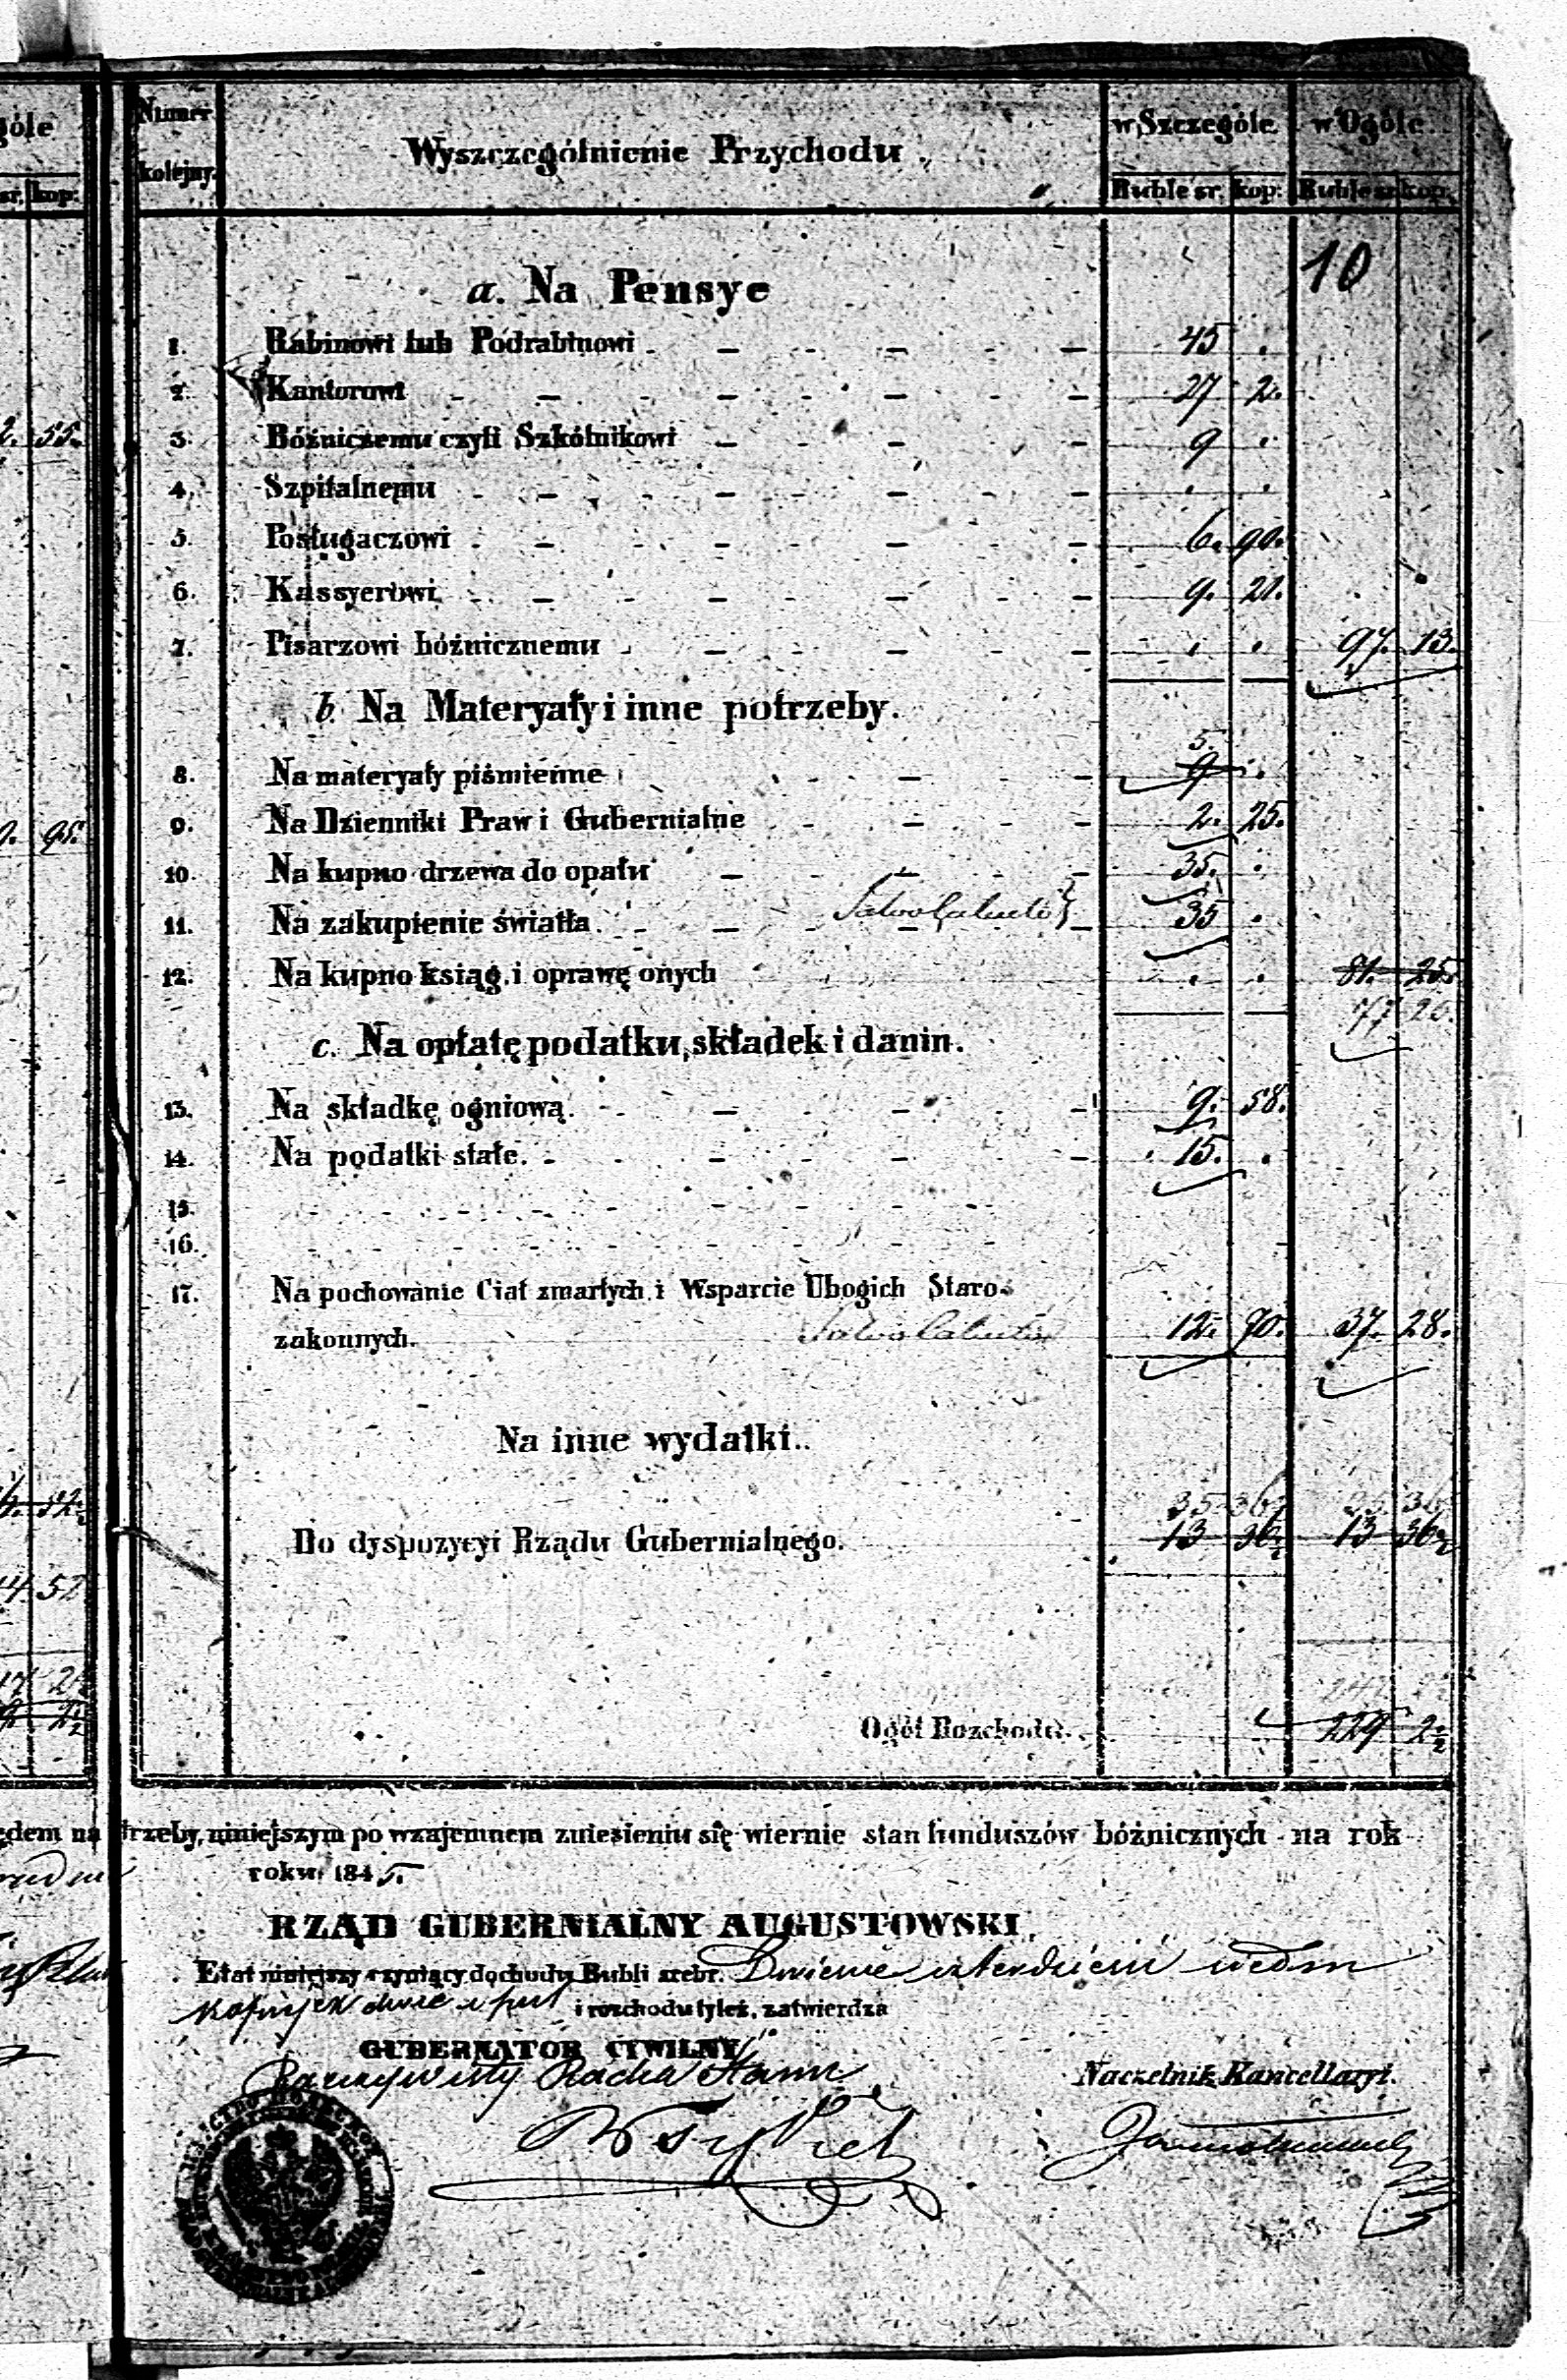 góle
sr. kop:
2. 55.
95.
52
4 52
Numer kolejny.
Wyszczególnienie Przychodu.
w Szczególe
w Ogóle
Ruble sr. kop:
Ruble sr. kop.
10
a. Na Pensye
1. Rabinowi lub Podrabinowi - - - - - 45 .
2. Kantorowi - - - - - 27 2.
3. Bóźniczemu czyli Szkólnikowi - - - 9 .
4. Szpitalnemu - - - - - . .
5. Posługaczowi - - - - - 6. 90.
6. Kassyerowi - - - - - 9. 21.
7. Pisarzowi bóźnicznemu - - - - . . 97. 13.
b. Na Materyały i inne potrzeby.
5.
8. Na materyały piśmienne - - 9 .
9. Na Dzienniki Praw i Gubernialne - - - 2. 25.
10. Na kupno drzewa do opału - - - 35. .
11. Na zakupienie światła. - - Salvo Calculo 35 .
12. Na kupno ksiąg i oprawę onych . . 81. 25
77 25.
c. Na opłatę podatku, składek i danin.
13. Na składkę ogniową. - - - 9. 58.
14. Na podatki stałe. - - - 15. .
15.
16.
17. Na pochowanie Ciał zmarłych i Wsparcie Ubogich Staro-
zakonnych. Salvo Calculo 12. 70. 37. 28.
Na inne wydatki..
35 36½ 36
Do dyspozycyi Rządu Gubernialnego. 13 36½ 13 36½
247
Ogół Rozchodu. 229 2½
ędem na trzeby, niniejszym po wzajemnem zniesieniu się wiernie stan funduszów bóżnicznych na rok
roku 1845.
RZĄD GUBERNIALNY AUGUSTOWSKI,
Etat niniejszy czyniący dochodu Rubli srebr. Dwieście czterdzieści siedm
kopiejek dwie i pół i rozchodu tyleż, zatwierdza
GUBERNATOR CYWILNY
Rzeczywisty Radca Stanu
Naczelnik Kancellaryi.